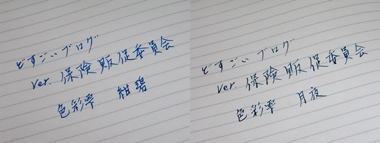 どすごいブログ
ver. 保険販促委員会
色彩雫 紺碧
どすごいブログ
ver. 保険販促委員会
色彩雫 月夜